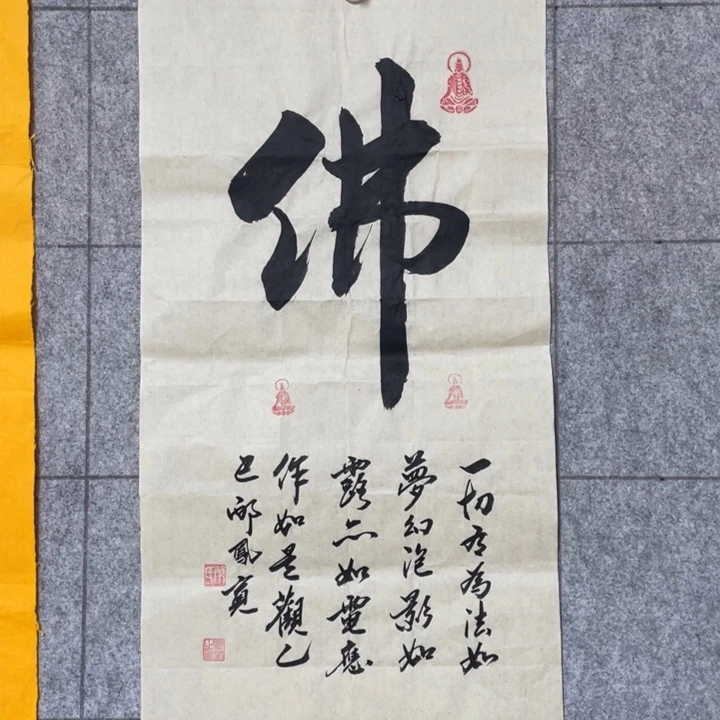 佛
一切有為法如
夢幻泡影如
露亦如電應
作如是觀乙
巳鳳寅